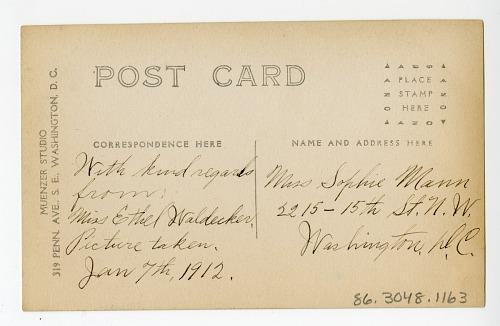 MUENZER STUDIO
319 PENN. AVE. S. E., WASHINGTON, D. C.
POST CARD
PLACE
STAMP
HERE
CORRESPONDENCE HERE
NAME AND ADDRESS HERE
With kind regards
from:
Miss Ethel Waldecker.
Picture taken.
Jan 7th, 1912.
Miss Sophie Mann
2215-15th St. N.W.
Washington, D.C.
86.3048.1163